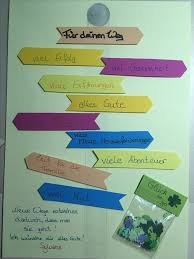 Für deinen Weg
viel Erfolg
viel Gesundheit
viele Erfahrungen
alles Gute
viele
neue Herausforderungen
Zeit für die
Familie
viele Abenteuer
viel Mut
Neue Wege entstehen
dadurch, dass man
sie geht!
Ich wünsche dir alles Gute!
Glück